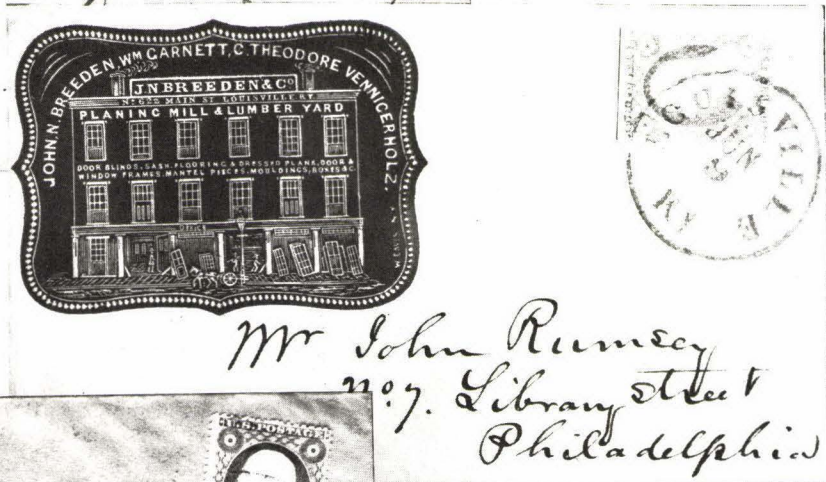 JOHN. N. BREEDEN, WM GARNETT, C. THEODORE VENNIGERHOLZ.
J.N BREEDEN & Co
No 622 MAIN ST. LOUISVILLE KY.
PLANING MILL & LUMBER YARD
DOOR BLINDS, SASH, FLOORING & DRESSED PLANK, DOOR &
WINDOW FRAMES, MANTEL PIECES, MOULDINGS, BOXES &C.
OFFICE
LOUISVILLE KY
JUN
Mr John Rumsey
No 7. Library street
Philadelphia
U.S. POSTAGE